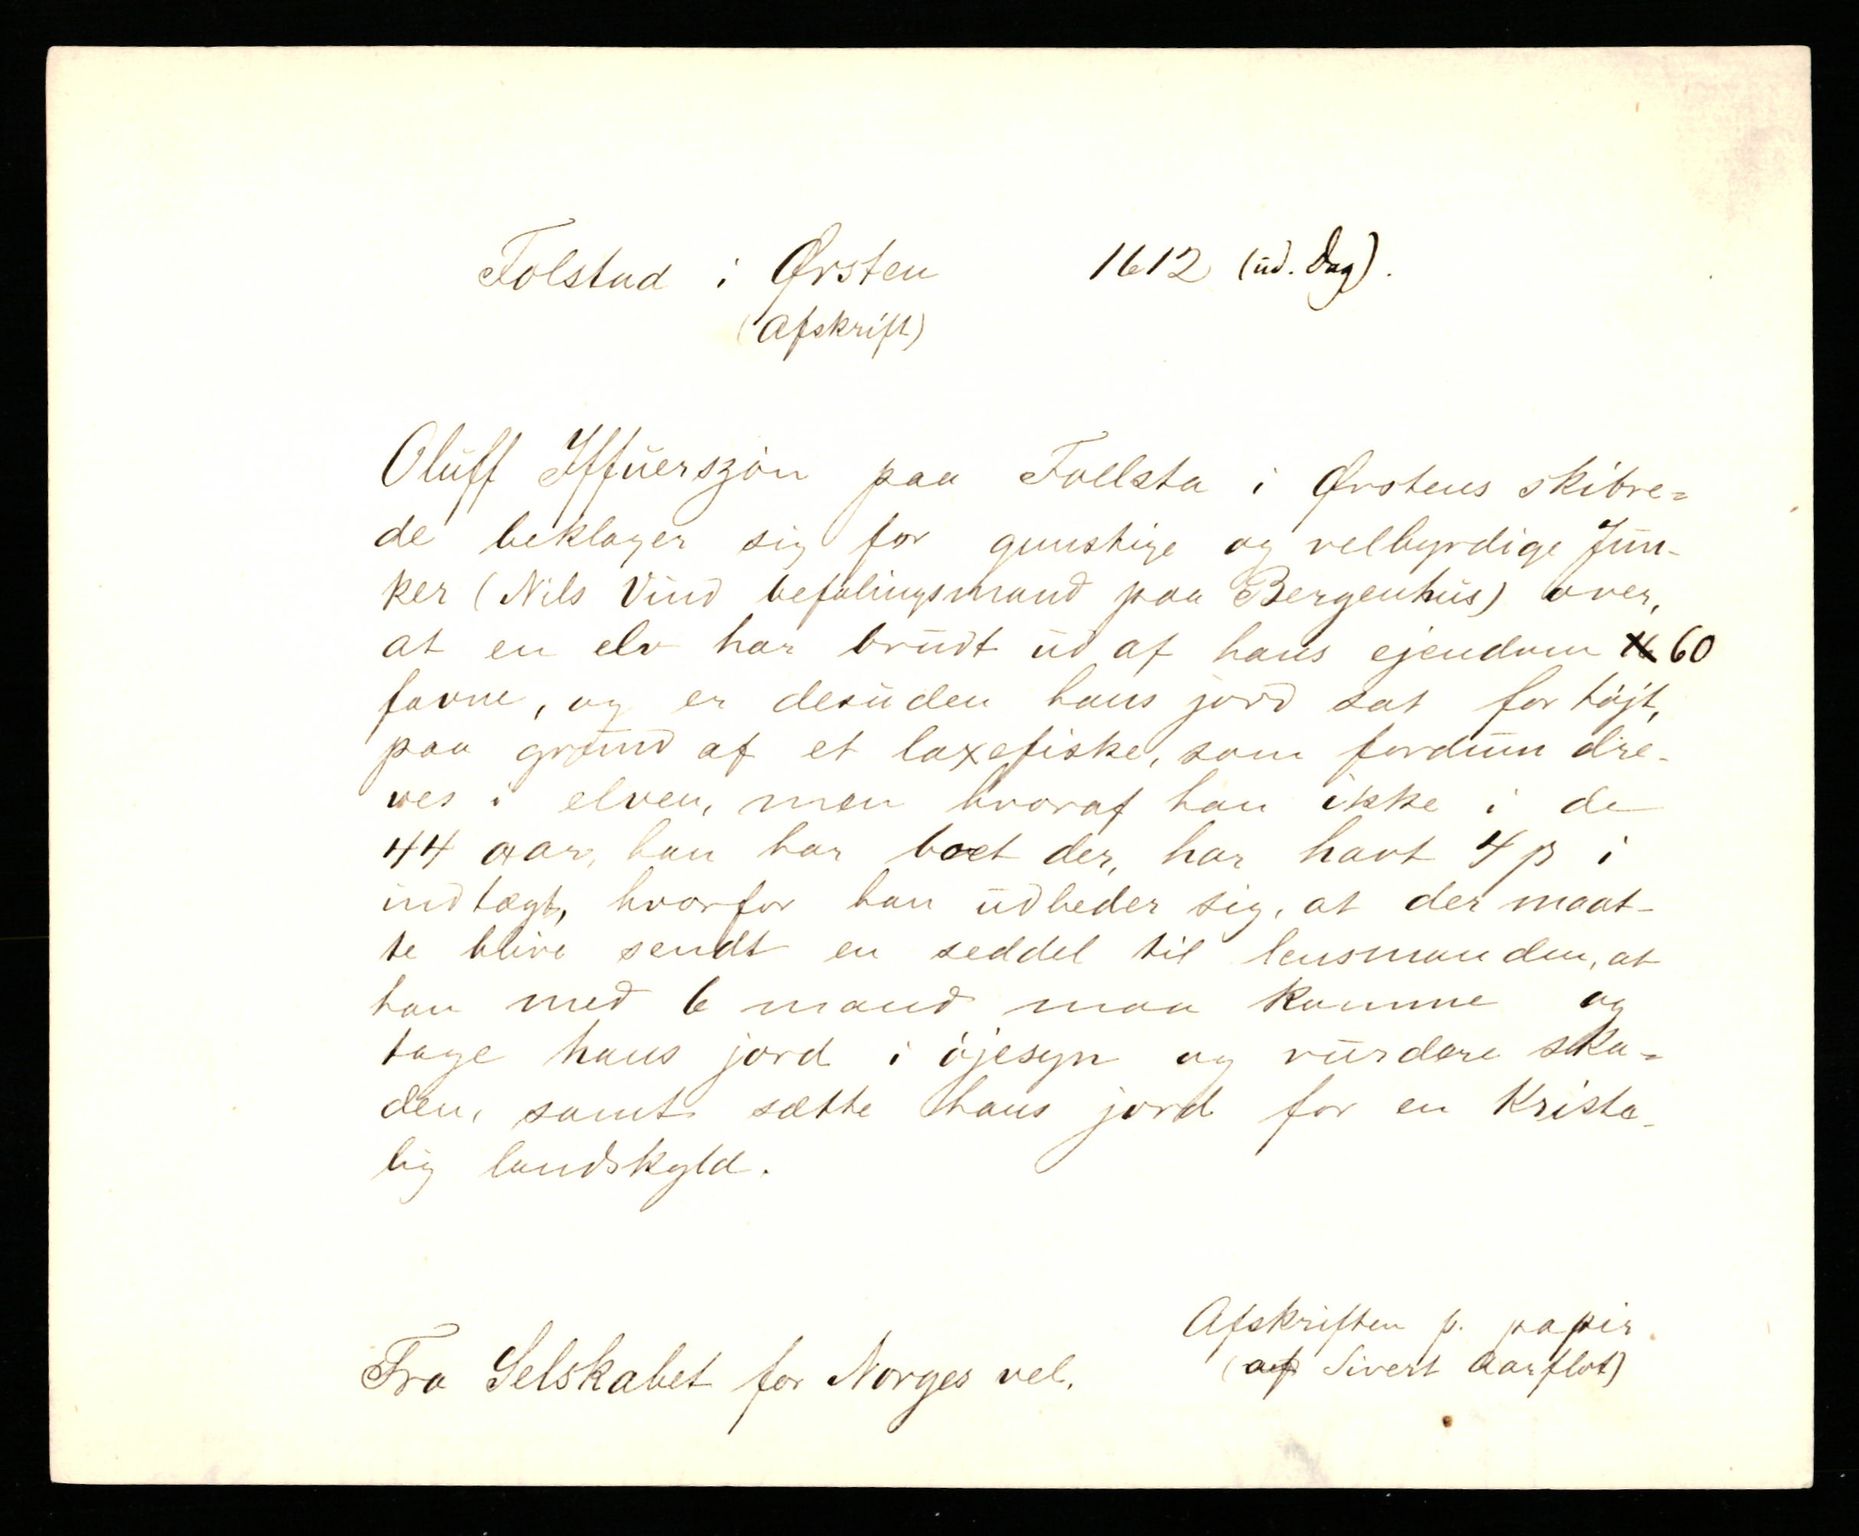 Folstad i Ørsten 1612 (ud. Dag).
(Afskrift)
Oluff Iffuerszøn paa Follsta i Ørstens skibre-
de beklager sig for gunstige og velbyrdige Jun-
ker (Nils Vind befalingsmand paa Bergenhus) over,
at en elv har brudt ud af hans ejendom 60
favne, og er desuden hans jord sat for højt,
paa grund af et laxefiske, som fordum dre-
ves i elven, men hvoraf han ikke i de
44 aar, han har boet der, har havt 4 β i
indtægt, hvorfor han udbeder sig, at der maat-
te blive sendt en seddel til lensmanden, at
han med 6 mand maa komme og
tage hans jord i øjesyn og vurdere ska-
den, samt sætte hans jord for en kriste-
lig landskyld.
Afskriften p. papir.
(af Sivert Aarflot)
Fra Selskabet for Norges vel.